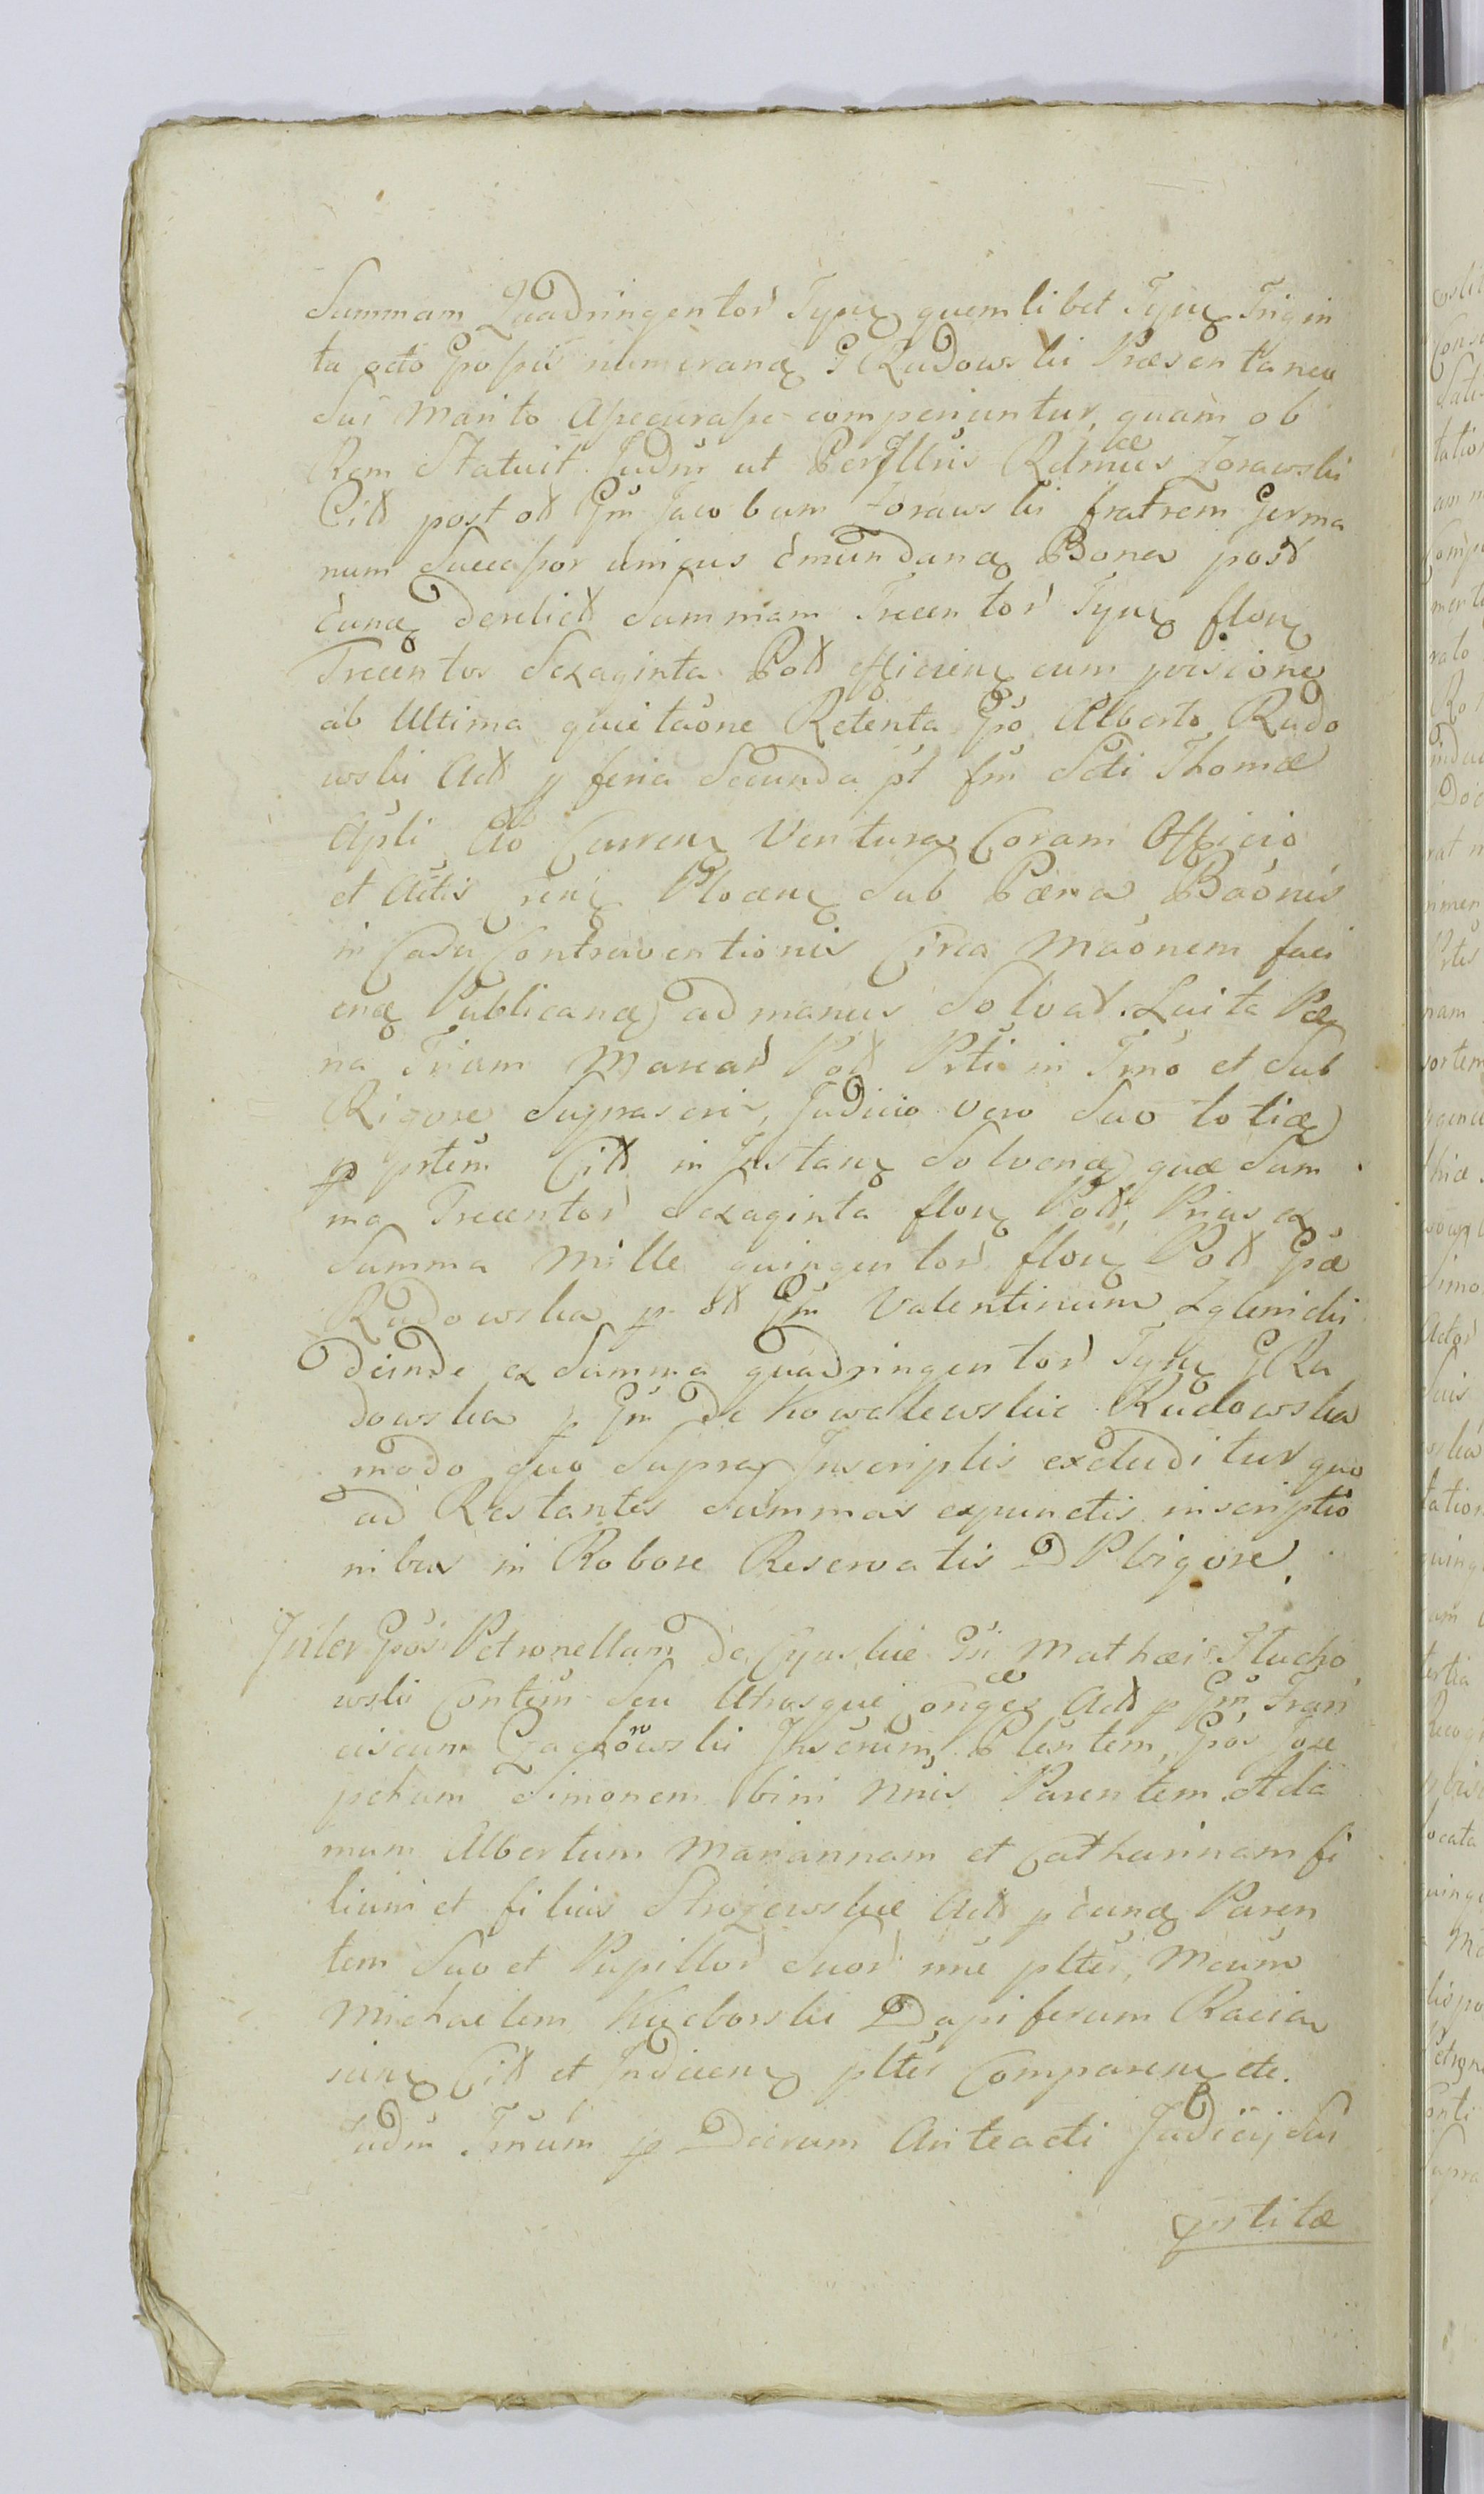 Summam Quadringentor Typu quemlibet Typu Trigin
ta octo grossis numerand G Rudowski Præsentanea
Sui Marito Assecurasse comperiuntur, quam ob
Rem Statuit Judm ut Perllris Rdmus Zorawski
Citt post ott Gm Jacobum Zorawski fratrem Germa
num Successor unicus Bona post
derelict Summam Trecentor Typu flou
Trecentos Sexaginta Poll efficien cum provisione
ab Ultima quietaone Retenta Gso Alberto Rudo
wski Actt feria Secunda pt fm Scti Thomæ
Apli Ao Curren Ventura Coram Officio
et Actis Plocen Sub Pæna Baonis
in Casu Contraventionis Circa Maonem faci
end Publicand ad manus Solvat. Luita Pæ
na Trium Marcar Poll Prti in Tmo et Sub
Rigore Suprascrir, Judicio vero Suo totid
p prtem Citt in Instan Solvend quæ Sum
ma Trecentor Sexaginta flou Poll, Prius ex
Summa Mille quingentor flou Poll Gsæ
Rudowska p ott Gm Valentinum Zglenicki
deinde ex Summa quadringentor Typu G Ru
dowska p Gm de Kowalewskie Rudowska
modo quo Supra Inscriptis excluditur quo
ad Restantes Summas expunctis inscriptio
nibus in Robore Reservatis D Pl vigore.
Inter Gsos Petronellam de Cyuskie Gsi Mathæi Tlucho
wski Contem Seu Utrosque Conges Actt p Gm Fran
ciscum Gachowski Plentem, Gsos Jose
pehum Simonem bini nnis Parentem Ada
mum Albertum Mariannam et Catharinam fi
lium et filias Strozewskie Actt p eund Paren
tem Suo et Pupillor Suor nne pltes, Mcum
Michaelem Kucborski Dapiferum Racia
scien Citt et Indicen pltes Comparen etc.
Judm Tnum p Dcirum Anteacti Judicij Sui
prtitæ